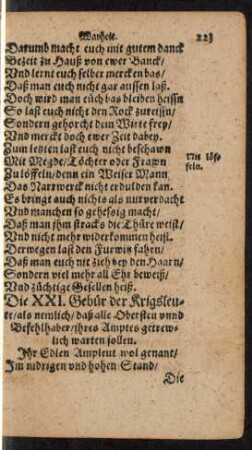 Warheit. 223
Darumb macht euch mit gutem danck
Bezeit zu Hauß von ewer Banck/
Vnd lernt euch selber mercken bas/
Daß man euch nicht gar aussen laß.
Doch wird man euch das bleiben heissn
So last euch nicht den Rock zureissn/
Sondern gehorcht dem Wirte frey/
Vnd merckt doch ewer Zeit dabey.
Zum letzten last euch nicht beschawn
Mit Megde/ Töchter oder Frawn
Zu löffeln/ denn ein Weiser Mann
Nit löf-
feln.
Das Narrwerck nicht erdulden kan.
Es bringt auch nichts als nur verdacht
Vnd manchen so gehessig macht/
Daß man jhm stracks die Thüre weist/
Vnd nicht mehr wiederkommen heist.
Derwegen last den Furwitz fahrn/
Daß man euch nit zieh bey den Haarn/
Sondern viel mehr all Ehr beweiß/
Vnd züchtige Gesellen heiß.
Die XXI. Gebür der Krigsleu-
te/ als nemlich/ daß alle Obersten vnnd
Befehlhaber/ jhres Amptes getrew-
lich warten sollen.
Jhr Edlen Ampleut wol genant/
Im nidrigen vnd hohen Stand/
Die